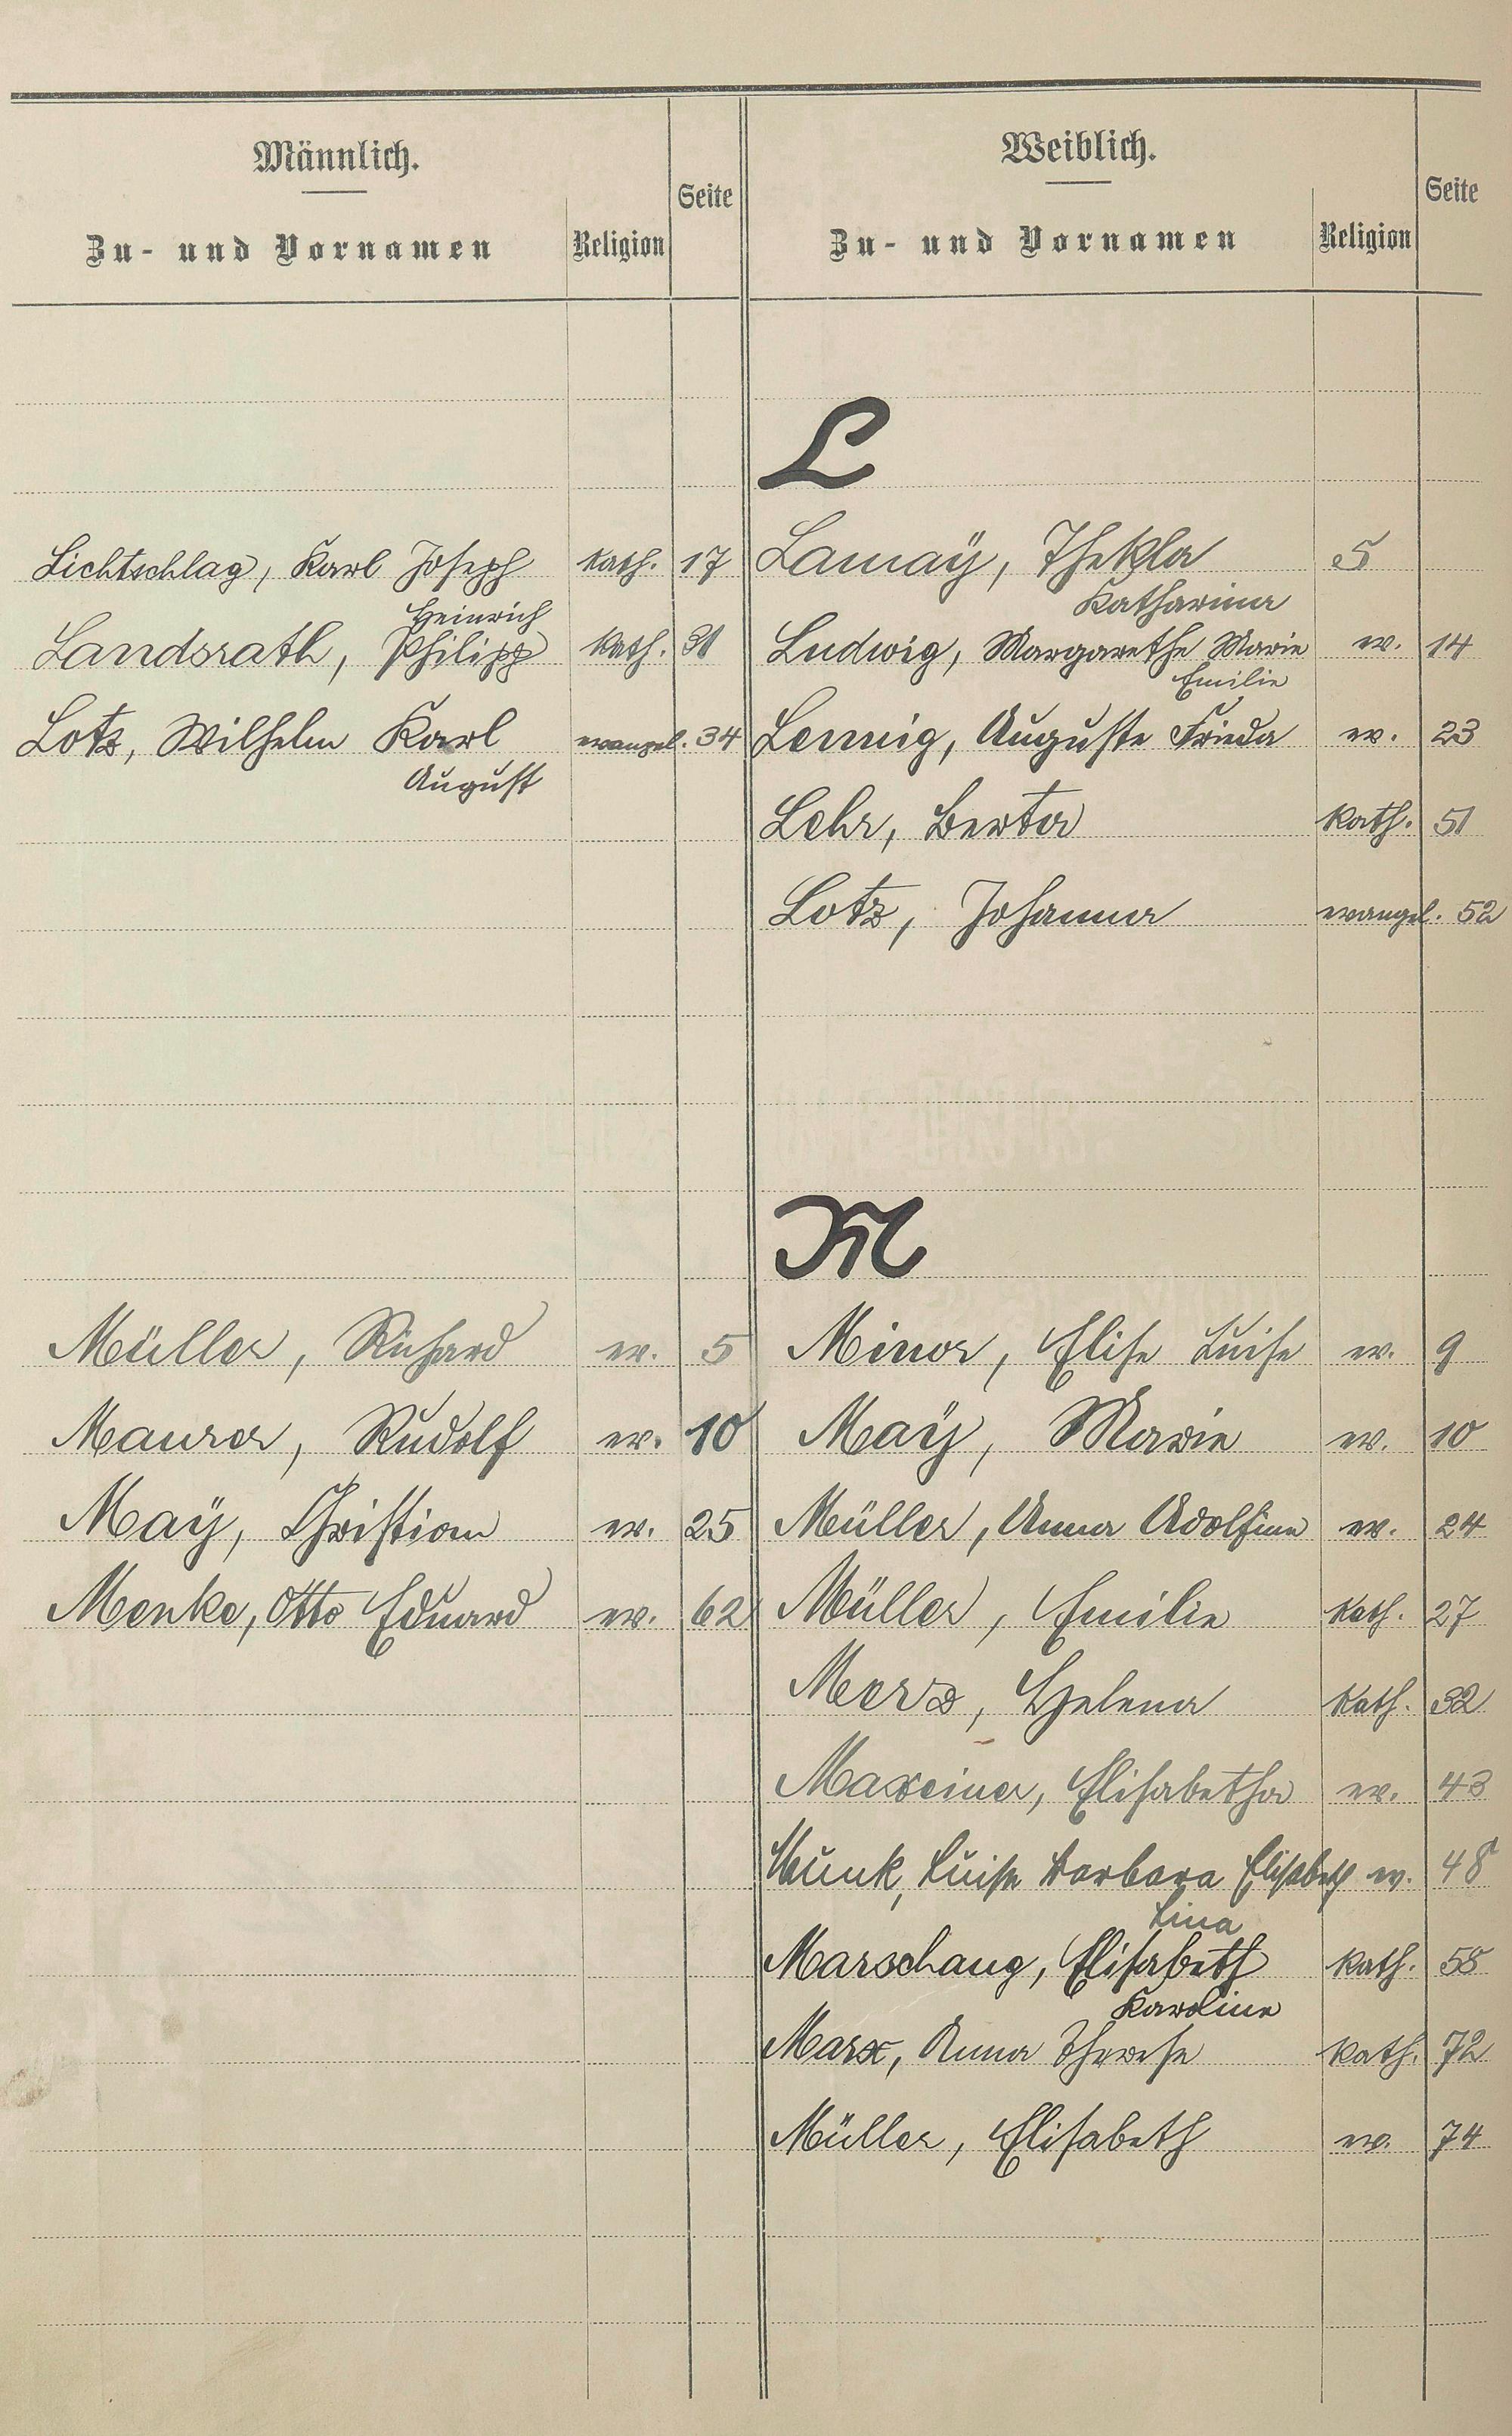 Männlich.
Zu- und Vornamen Religion Seite
Weiblich.
Zu- und Vornamen Religion Seite
L
Lichtschlag, Karl Joseph kath. 17
Heinrich
Landsrath, Philipp kath. 31
Lotz, Wilhelm Karl evangel. 34
August
Lamaÿ, Thekla 5
Katharina
Ludwig, Margarethe Marie ev. 14
Emilie
Lennig, Auguste Frieda ev. 23
Lehr, Berta kath. 51
Lotz, Johanna evangel. 52
M
Müller, Richard ev. 5
Maurer, Rudolf ev. 10
Maÿ, Christian ev. 25
Menke, Otto Eduard ev. 62
Minor, Elise Luise ev. 9
Maÿ, Marie ev. 10
Müller, Anna Adolfine ev. 24
Müller, Emilie kath. 27
Merz, Helena kath. 32
Maxeiner, Elisabetha ev. 43
Munk, Luise Barbara Elisabeth ev. 48
Lina
Marschang, Elisabeth kath. 58
Karoline
Marx, Anna Therese kath. 72
Müller, Elisabeth ev. 74